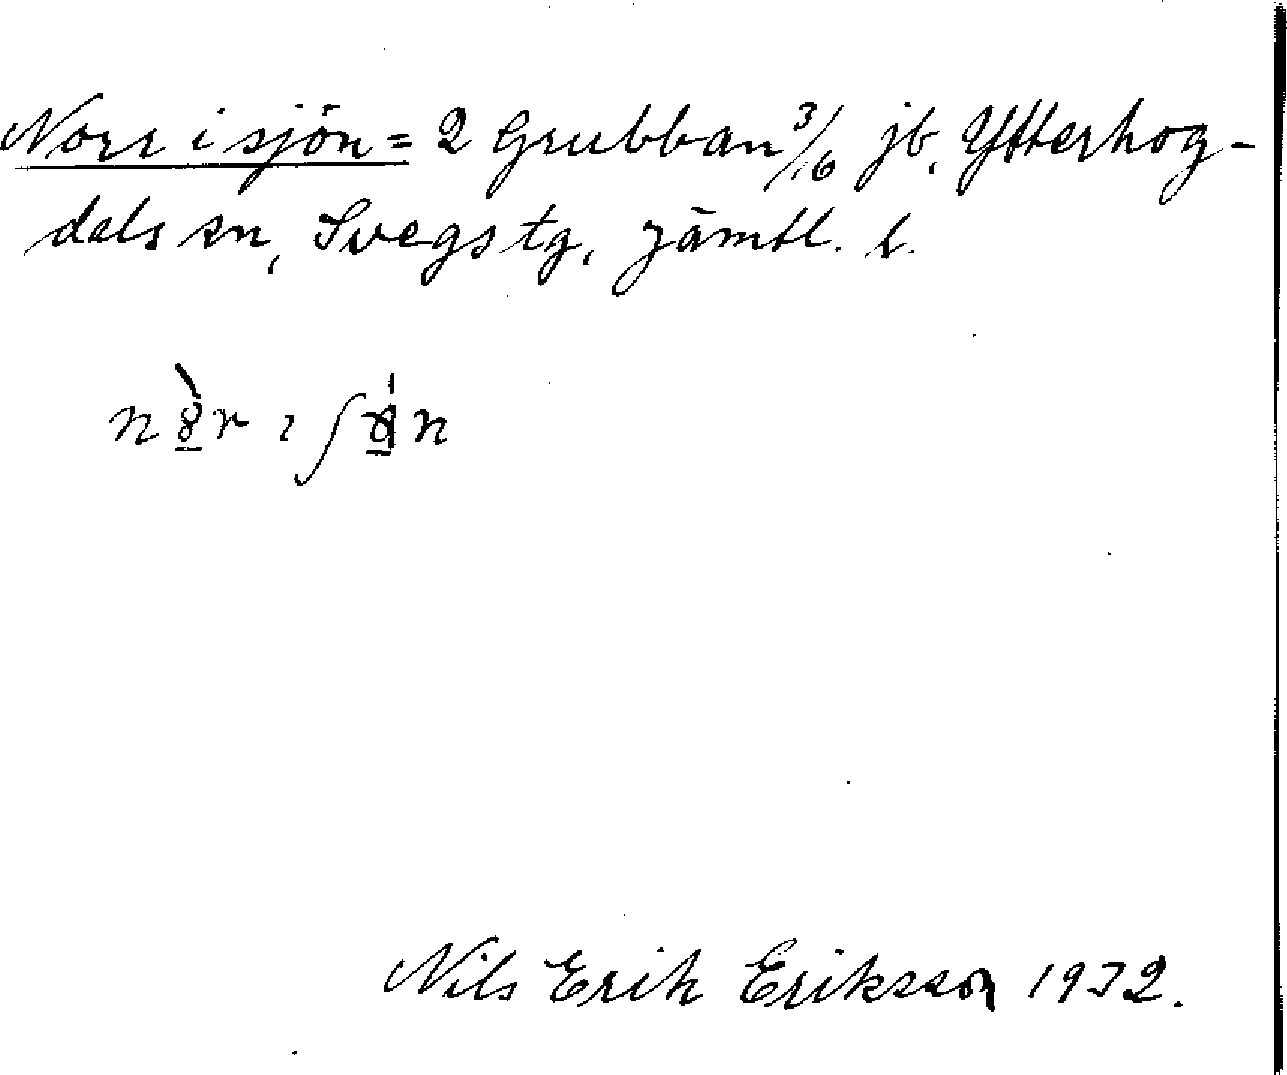 Norr i sjön = 2 Grubban 3/16 jb. Ytterhog-
dals sn, Svegs tg, Jämtl. l.
Nils Erik Eriksson 1932.